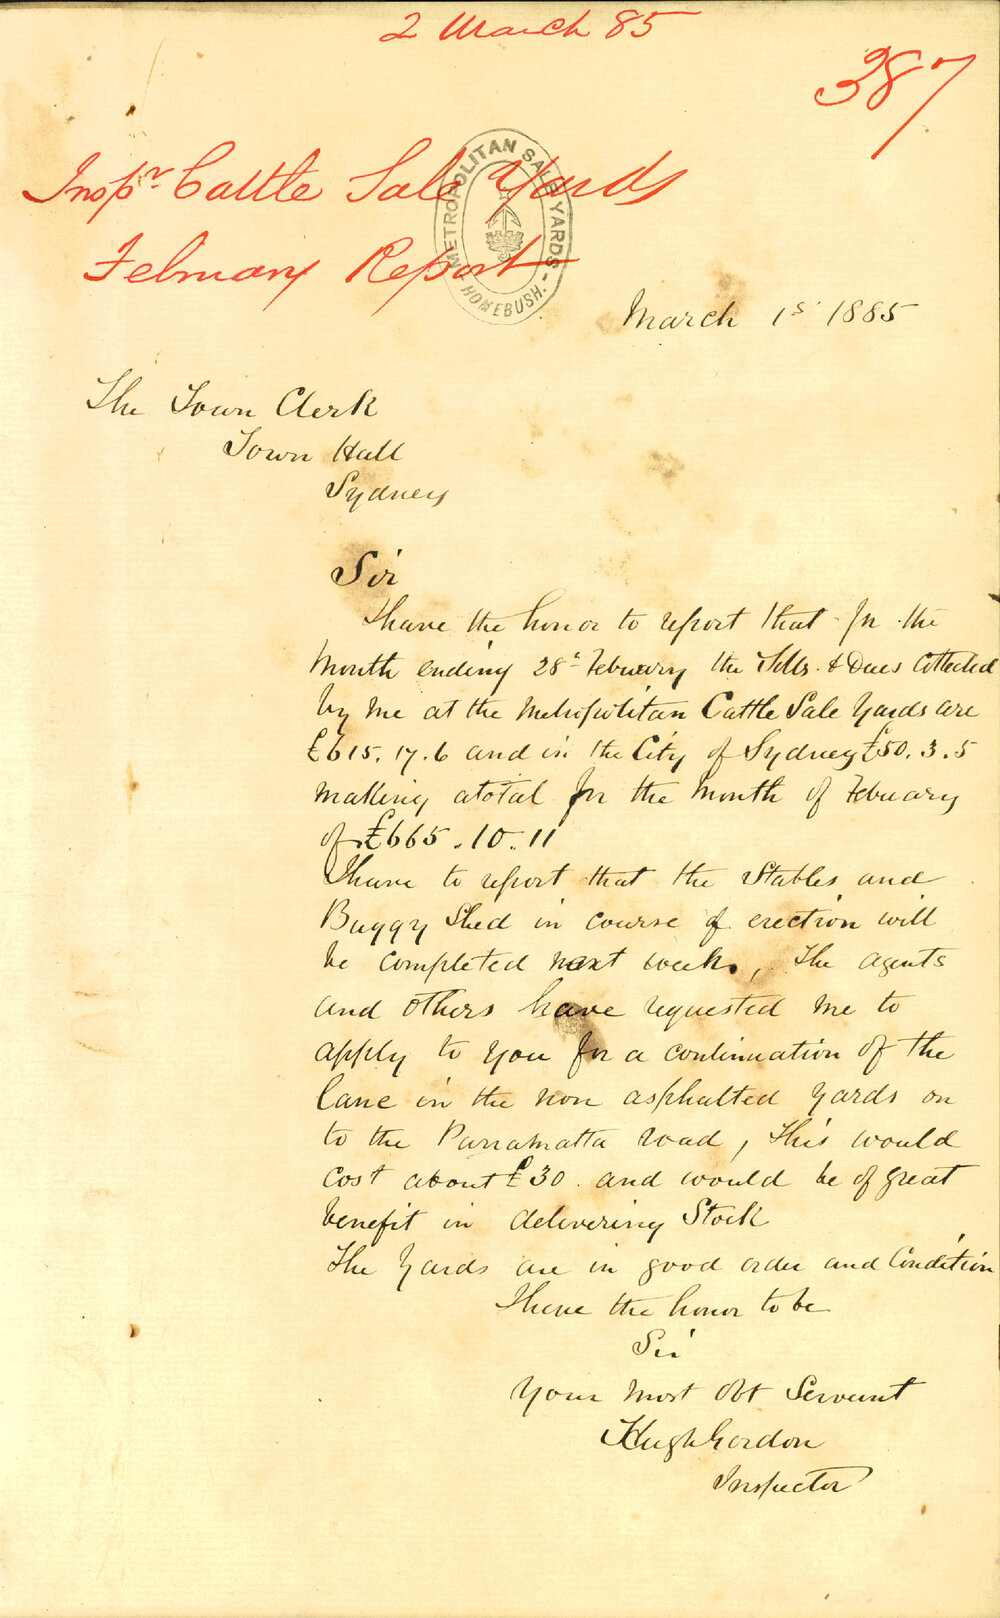 2 March 85
387
Inspr Cattle Sale Yards
February Report
METROPOLITAN SALE YARDS - HOMEBUSH.
March 1s 1885
The Town Clerk
Town Hall
Sydney
Sir
I have the honor to report that for the
Month ending 28t February the Tolls & Dues Collected
by me at the Metropolitan Cattle Sale Yards are
£615.17.6 and in the City of Sydney £50.3.5
making a total for the Month of Febuary
of £665.10.11
I have to report that the Stables and
Buggy Shed in course of erection will
be completed next week, The agents
and others have requested me to
apply to you for a continuation of the
lane in the non asphalted yards on
to the Parramatta road, This would
cost about £30. and would be of great
benefit in delivering Stock
The Yards are in good order and Condition
I have the honor to be
Sir
Your Most Obt Servant
Hugh Gordon
Inspector